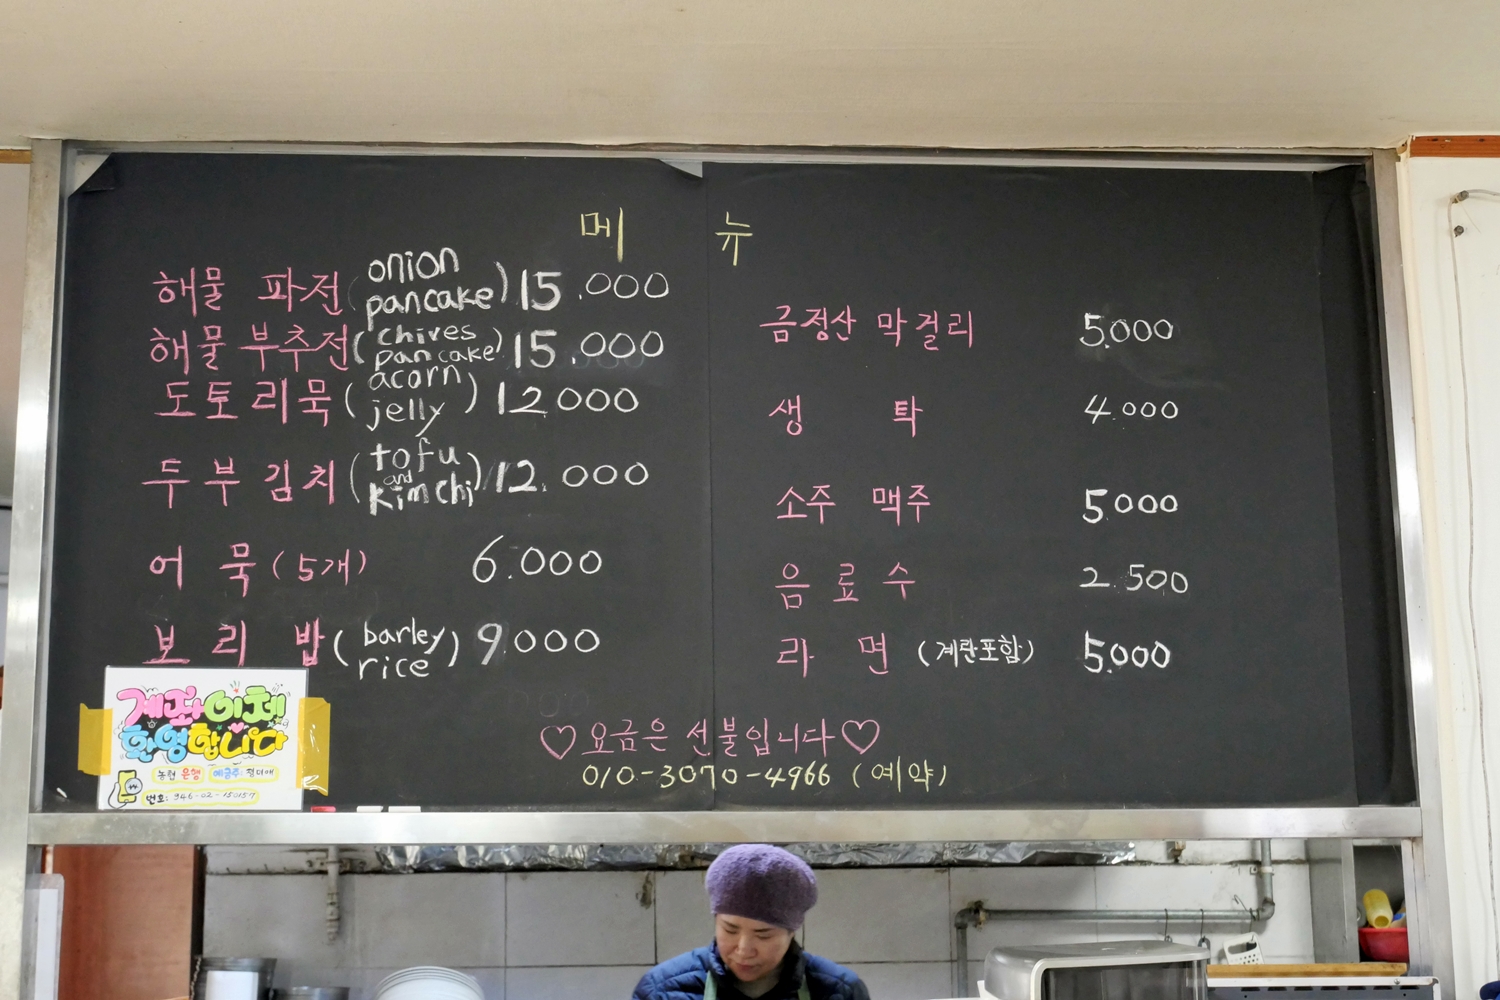 메 뉴
해물 파전 (onion pancake) 15.000
해물 부추전 (chives pancake) 15.000
도토리묵 (acorn jelly) 12000
두부김치 (tofu and kimchi) 12.000
어 묵 (5개) 6.000
보 리 밥 (barley rice) 9.000
금정산 막걸리 5.000
생 탁 4.000
소주 맥주 5.000
음 료 수 2.500
라 면 (계란포함) 5.000
♡요금은 선불입니다♡
010-3070-4966 (예약)
계좌이체
환영합니다
농협 은행 예금주:
번호: 946-02-150157